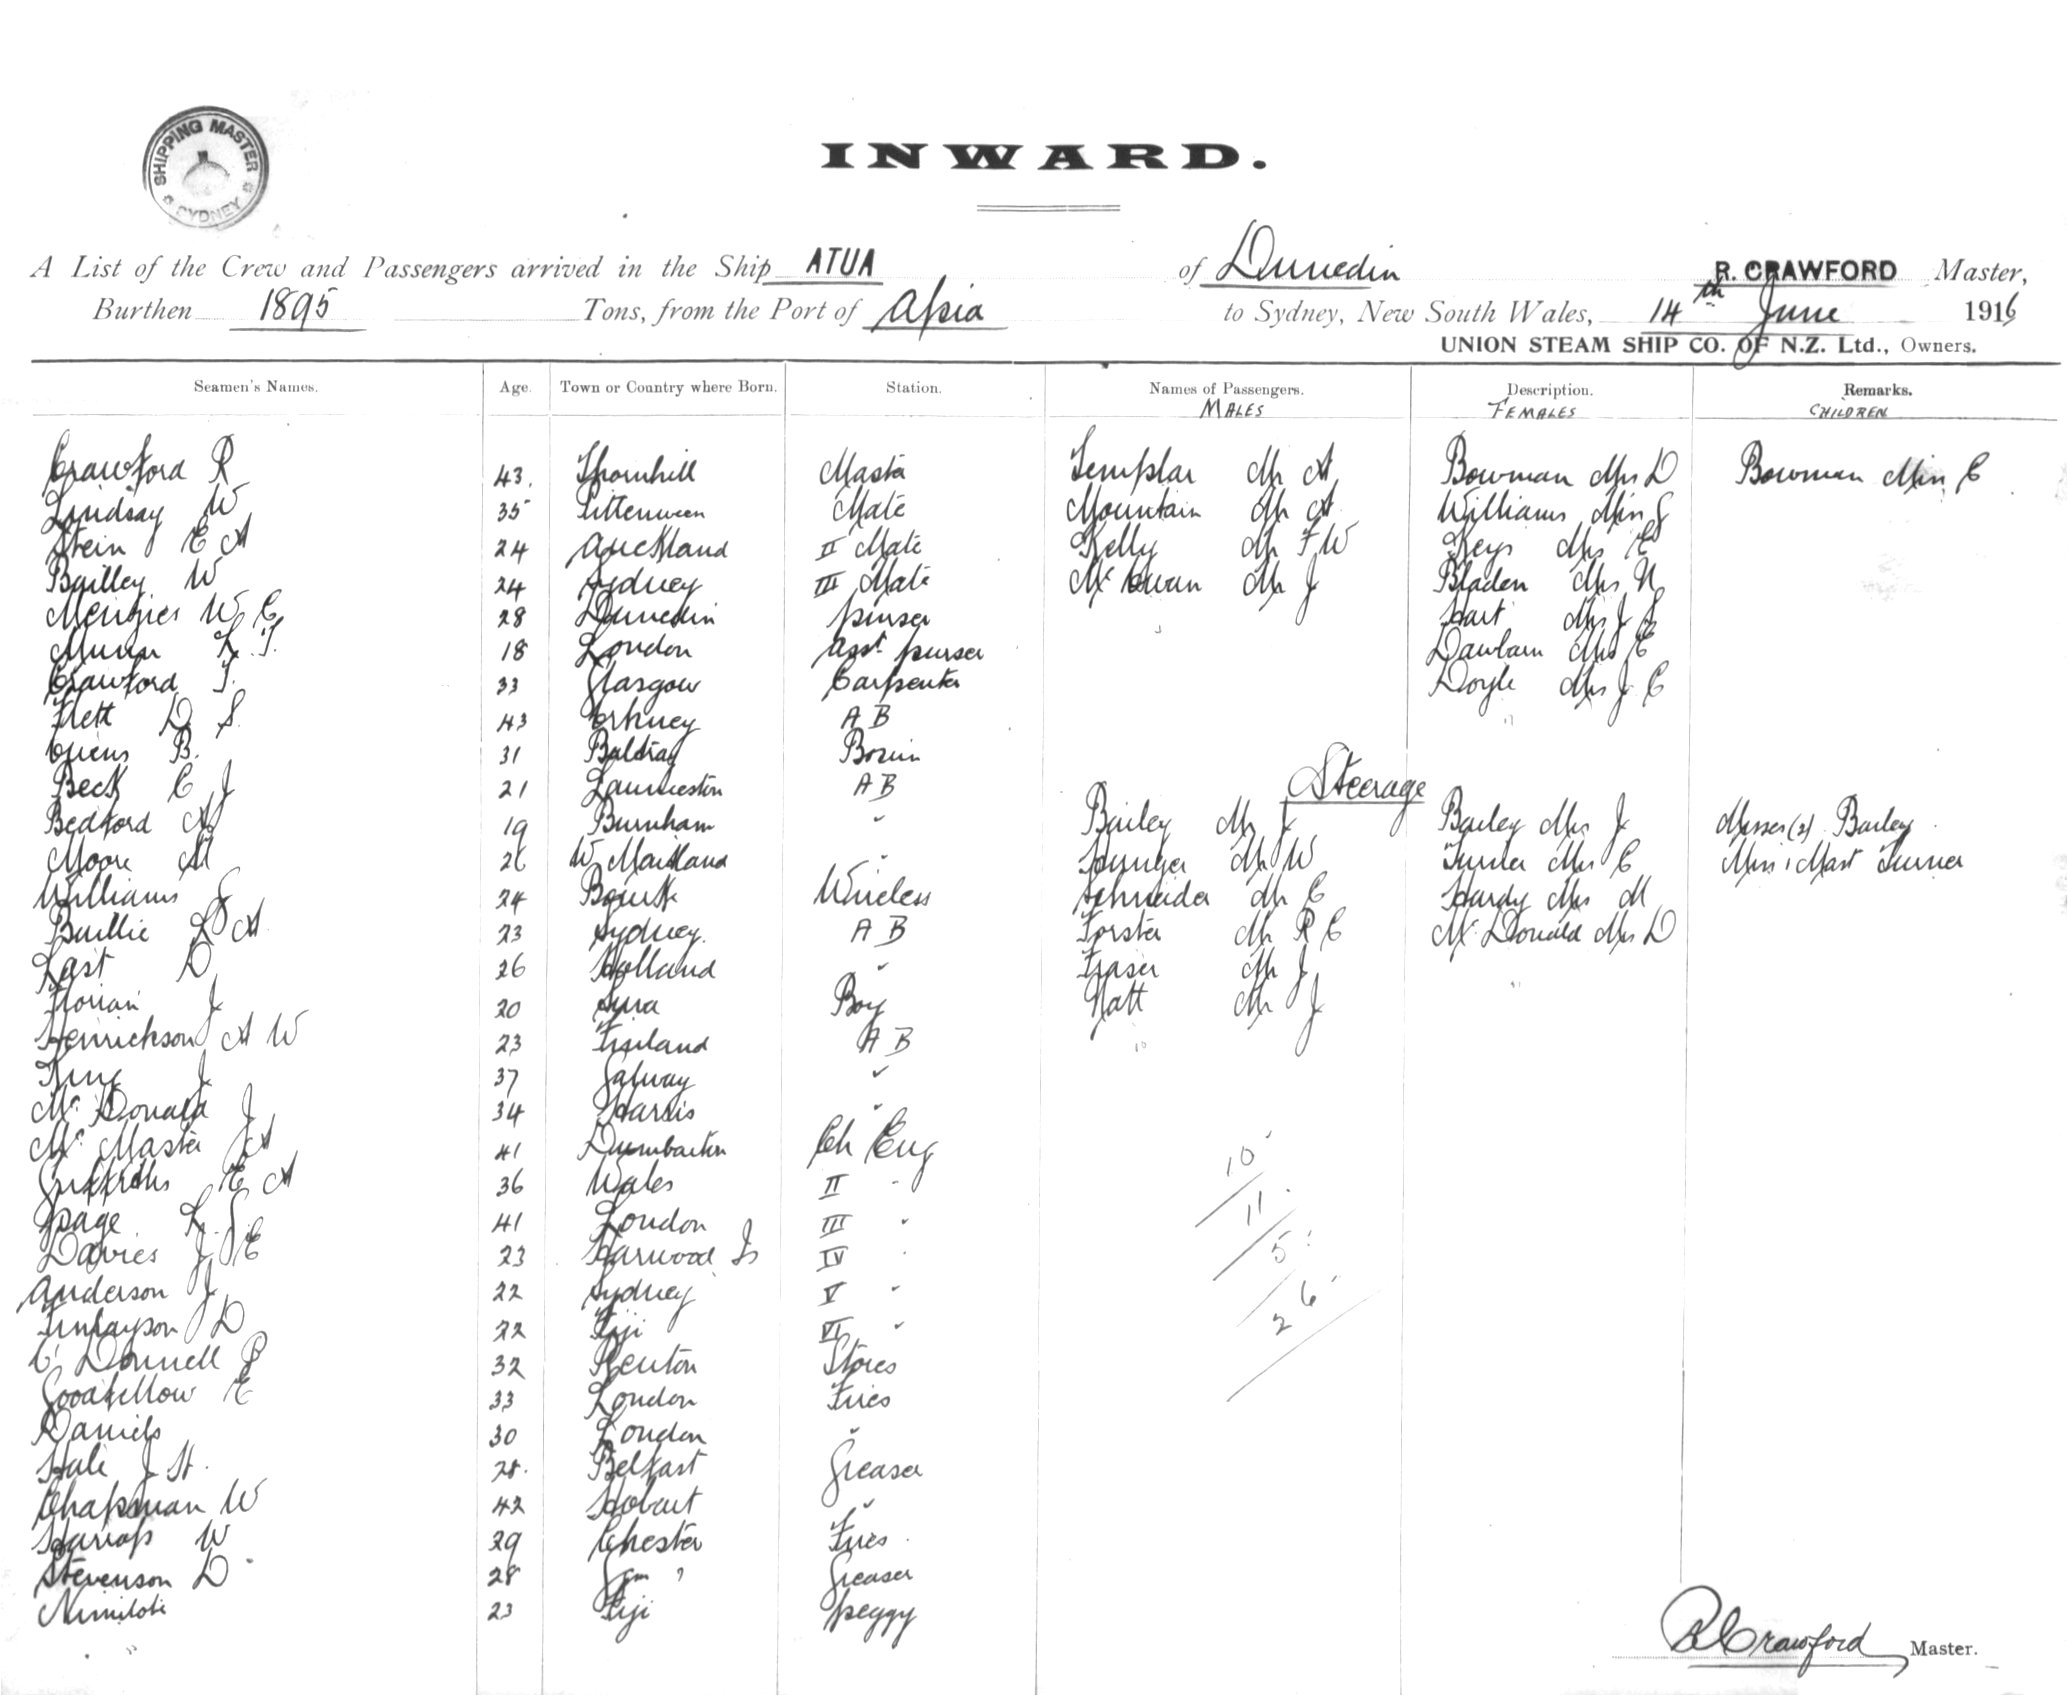 SHIPPING MASTER
SYDNEY
INWARD.
A List of the Crew and Passengers arrived in the Ship ATUA of Dunedin R. CRAWFORD Master,
Burthen 1895 Tons, from the Port of Apia to Sydney, New South Wales, 14th June 1916
UNION STEAM SHIP CO. OF N.Z. Ltd., Owners.
Seamen's Names. Age. Town or Country where Born. Station. Names of Passengers. Description. Remarks.
MALES FEMALES CHILDREN
Crawford R 43. Thornhill Master Templar Mr A Bowman Mrs D Bowman Miss C
Lindsay W 35 Pittenween Mate Mountain Mr A Williams Miss G
Stein E A 24 Auckland II Mate Kelly Mr F W Keys Mrs E
Bailley W 24 Sydney III Mate Mc Ewan Mr J Bladen Mrs N
Menzies W C 28 Dunedin purser Hart Mrs J S
Munn L. T. 18 London Asst purser Dawbarn Mrs E
Crawford T. 33 Glasgow Carpenter Doyle Mrs J C
Flett D S. 43 Orkney A B
Owens B. 31 Baltray Bosun
Beck C J 21 Launceston A B
Steerage
Bedford A 19 Burnham " Bailey Mr J Bailey Mrs J Misses (2) Bailey
Moore A 26 W Maitland " Mr W Turner Mrs C Miss & Mast Turner
Williams G 24 Bourke Wireless Schneider Mr C Hardy Mrs M
Baillie L A 23 Sydney. A B Forster Mr R C Mc Donald Mrs D
Last D 26 Holland " Fraser Mr J
Florian J 20 Boy Natt Mr J
Henrickson A W 23 Finland A B
King J 37 Galway "
Mc Donald J 34 Harris "
Mc Master J A 41 Dumbarton Ch Eng
Griffiths E A 36 Wales II "
Page L. S. 41 London III "
Davies J E 23 Harwood Is IV "
Anderson J 22 Sydney V "
Finlayson D 22 Fiji VI "
O' Donnell P 32 Renton Stores
Goodfellow E 33 London Fires
Daniels 30 London "
Hale J H. 28. Belfast Greaser
Chapman W 42 Hobart "
Harrop W 29 Chester Fires
Stevenson D 28 Greaser
Nimiloti 23 Fiji peggy
10
11
5
26
R Crawford Master.